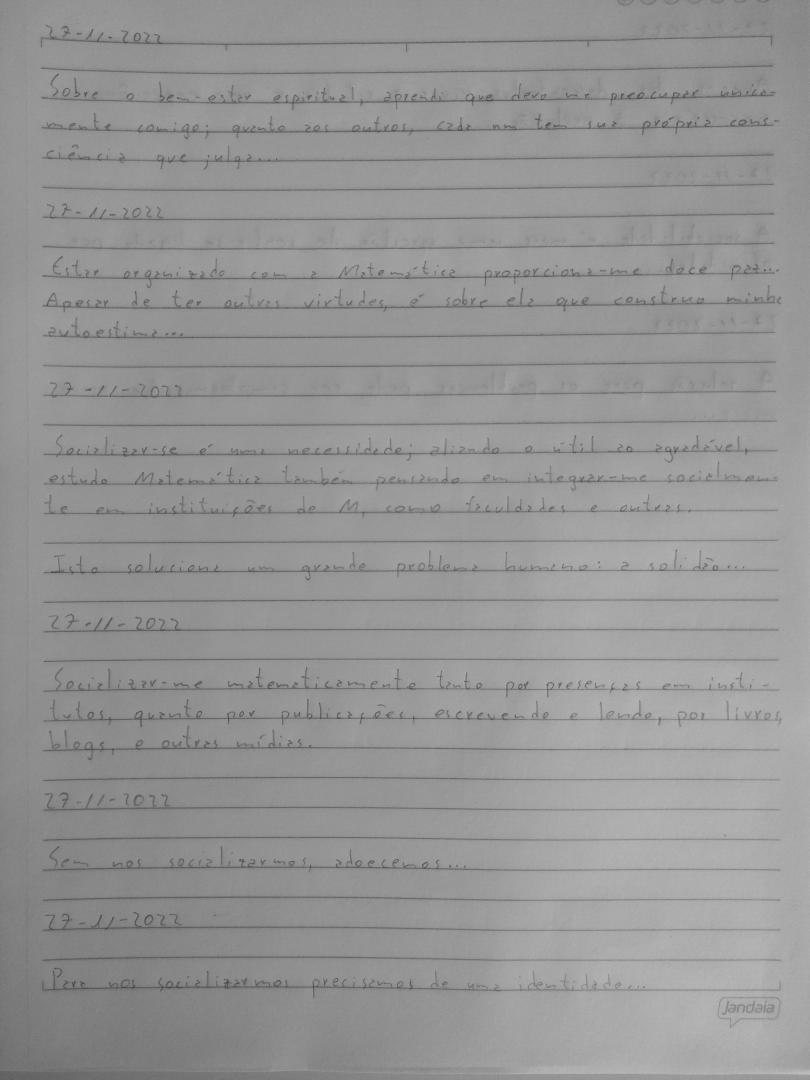 27-11-2022
Sobre o bem-estar espiritual, aprendi que devo me preocupar unica-
mente comigo; quanto aos outros, cada um tem sua própria cons-
ciência que julga...
27-11-2022
Estar organizado com a Matemática proporciona-me doce paz...
Apesar de ter outras virtudes, é sobre ela que construo minha
autoestima...
27-11-2022
Socializar-se é uma necessidade; aliando o útil ao agradável,
estudo Matemática também pensando em integrar-me socialmen-
te em instituições de M, como faculdades e outras.
Isto soluciona um grande problema humano: a solidão...
27-11-2022
Socializar-me matematicamente tanto por presenças em insti-
tutos, quanto por publicações, escrevendo e lendo, por livros,
blogs, e outras mídias.
27-11-2022
Sem nos socializarmos, adoecemos...
27-11-2022
Para nos socializarmos precisamos de uma identidade...
Jandaia